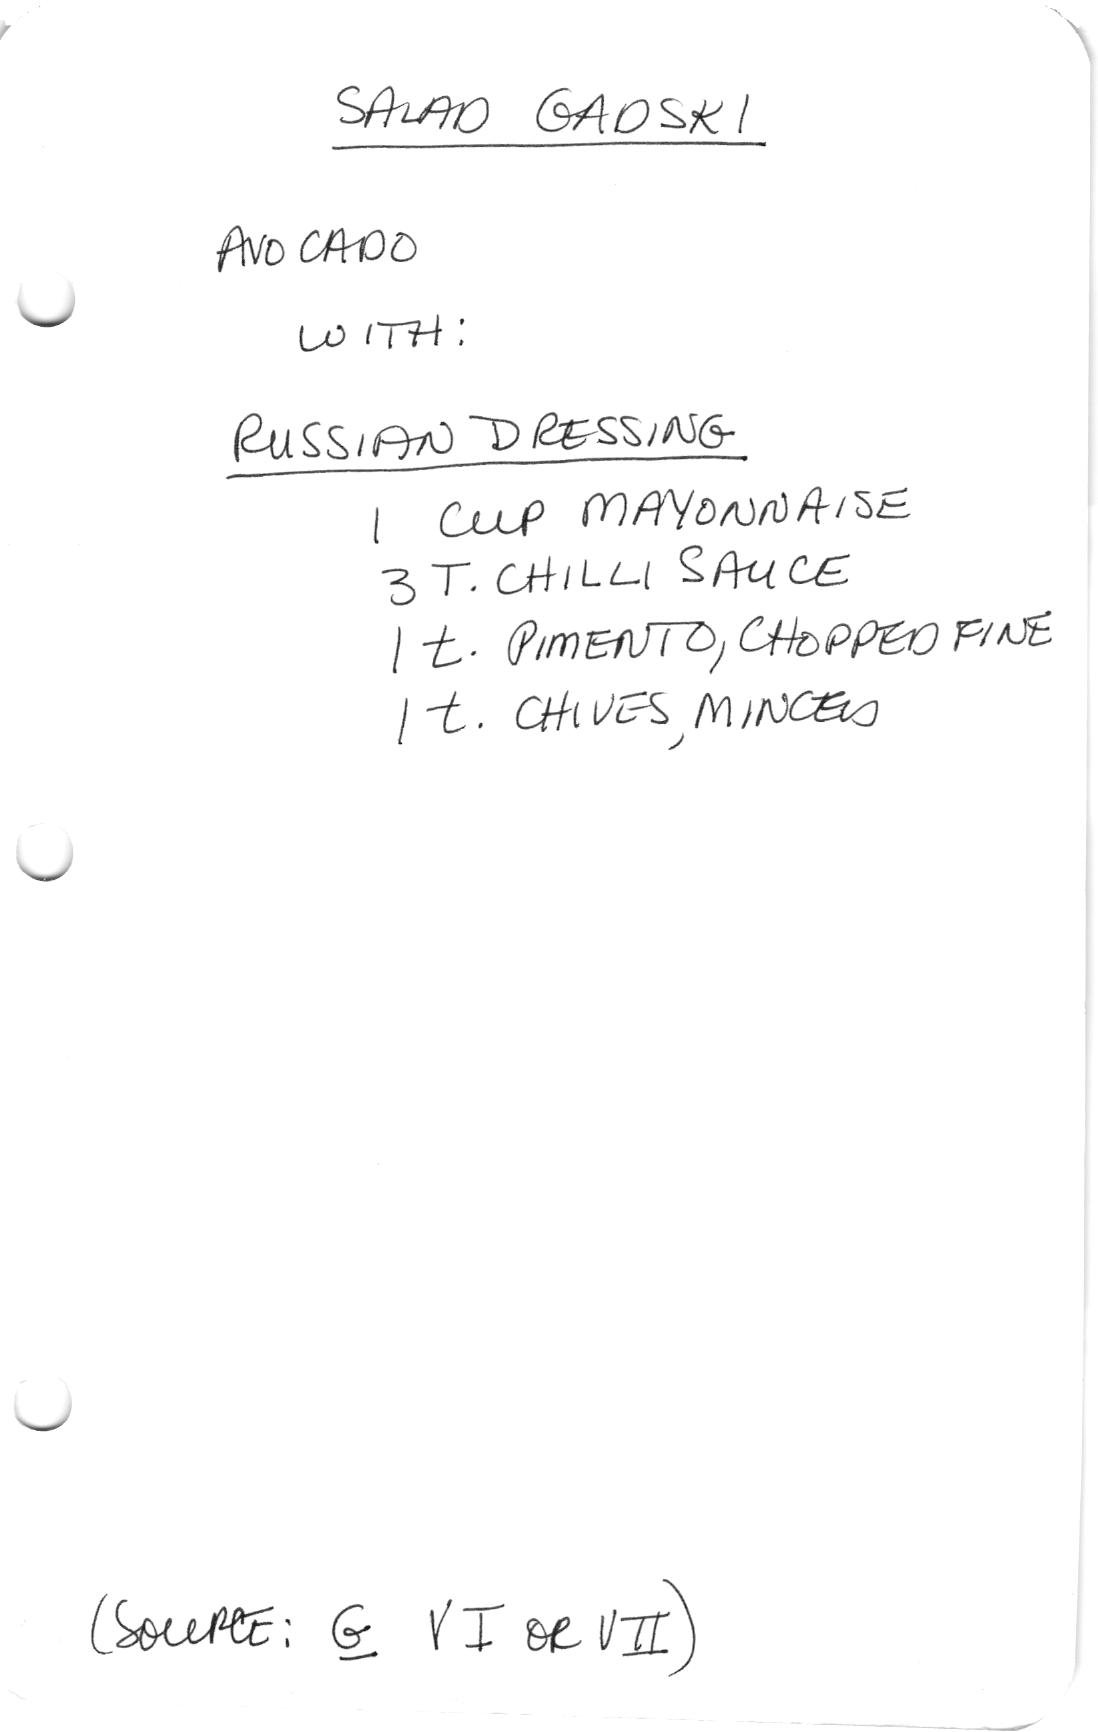 SALAD GADSKI
AVOCADO
WITH:
RUSSIAN DRESSING
1 CUP MAYONNAISE
3 T. CHILLI SAUCE
1 t. PIMENTO, CHOPPED FINE
1 t. CHIVES, MINCED
(SOURCE: G VI OR VII)